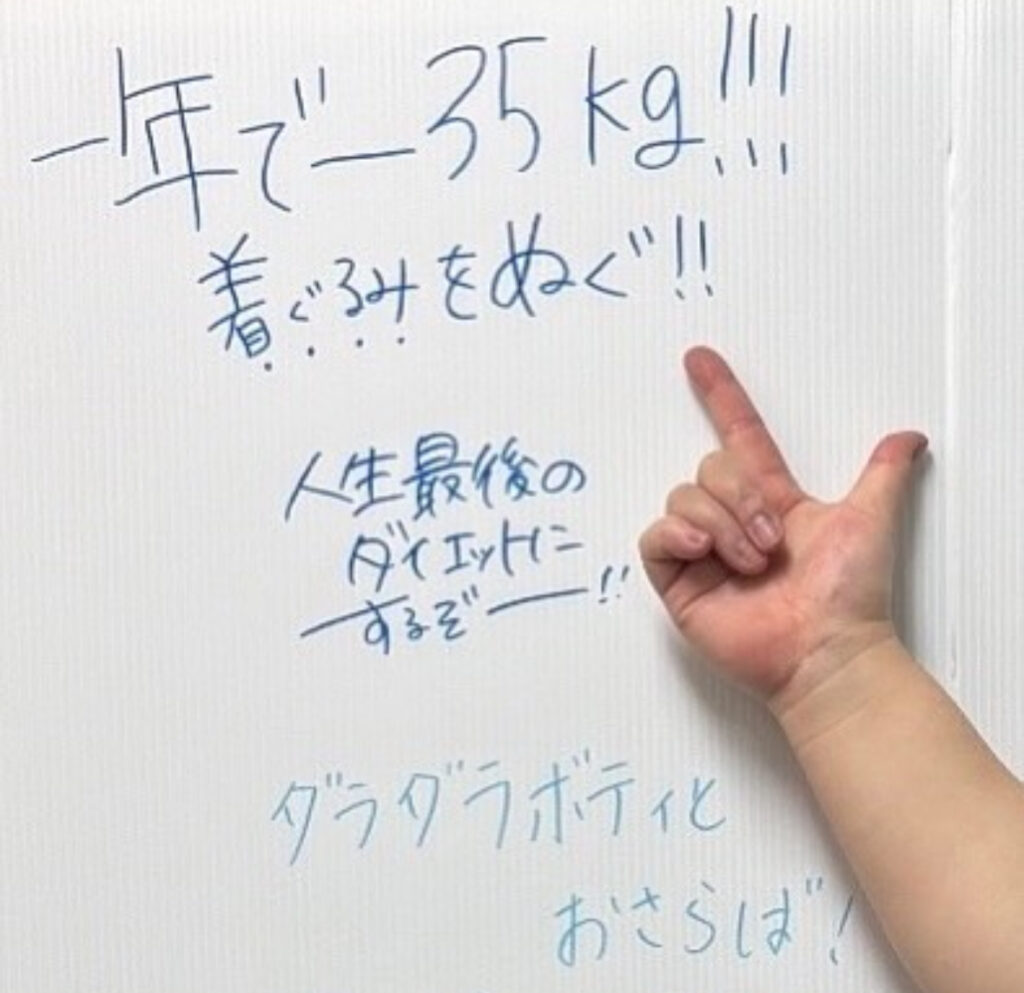 一年で−35kg!!!
着ぐるみをぬぐ!!
人生最後の
ダイエットに
するぞ!!
ダラダラボディと
おさらば!